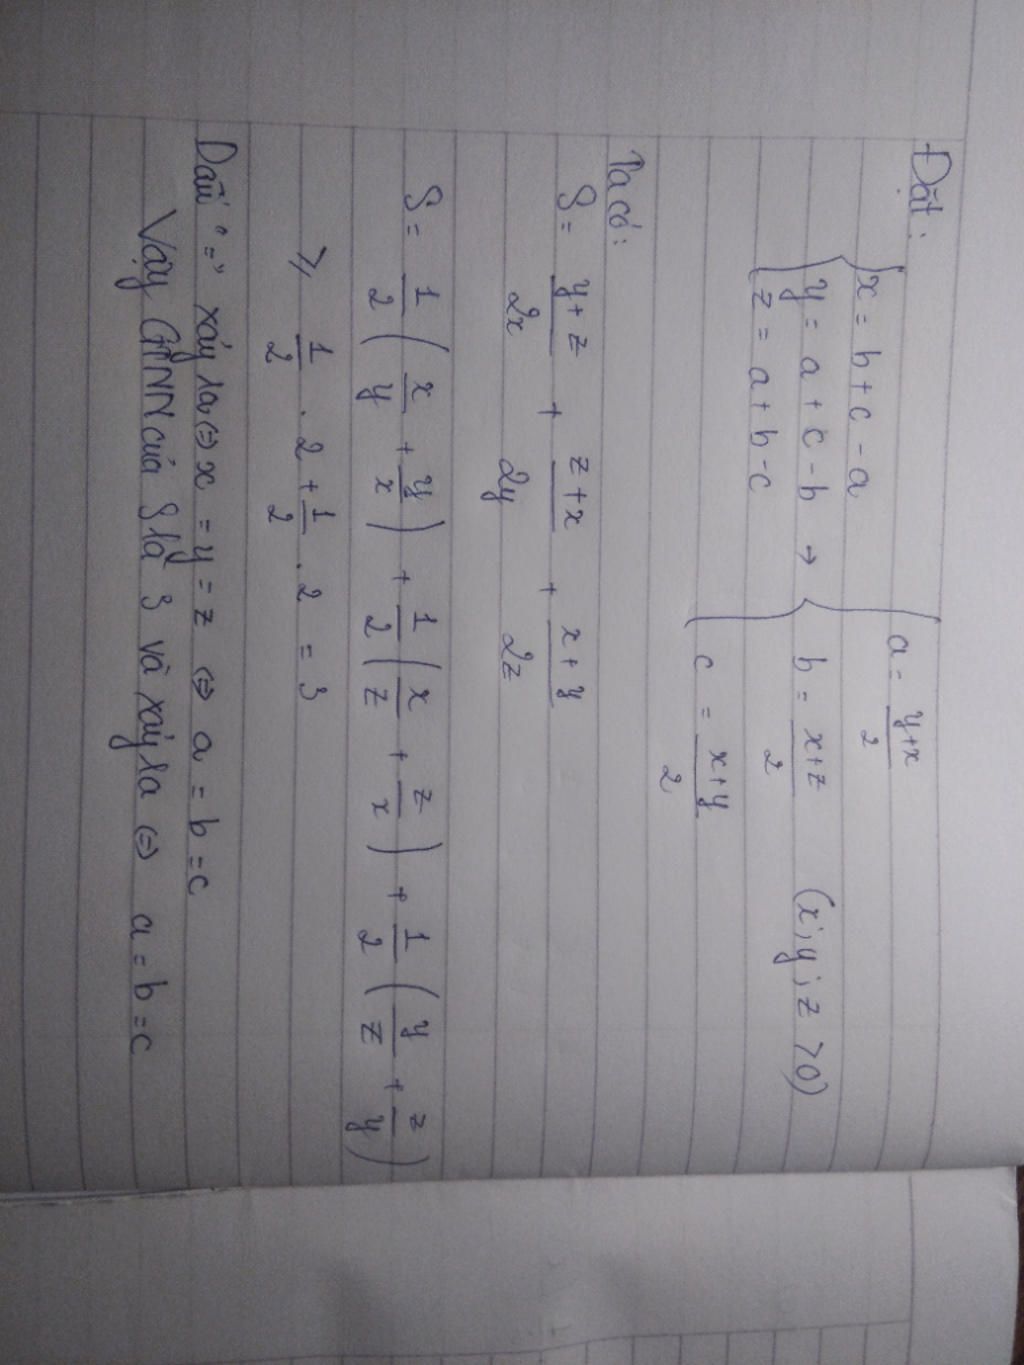 Đặt:
{ x = b + c - a
y = a + c - b → { a = \frac{y+x}{2}
z = a + b - c b = \frac{x+z}{2} (x; y; z > 0)
c = \frac{x+y}{2}
Ta có:
S = \frac{y+z}{2x} + \frac{z+x}{2y} + \frac{x+y}{2z}
S = \frac{1}{2} ( \frac{x}{y} + \frac{y}{x} ) + \frac{1}{2} ( \frac{x}{z} + \frac{z}{x} ) + \frac{1}{2} ( \frac{y}{z} + \frac{z}{y} )
≥ \frac{1}{2} . 2 + \frac{1}{2} . 2 = 3
Dấu "=" xảy ra ⇔ x = y = z ⇔ a = b = c
Vậy GTNN của S là 3 và xảy ra ⇔ a = b = c